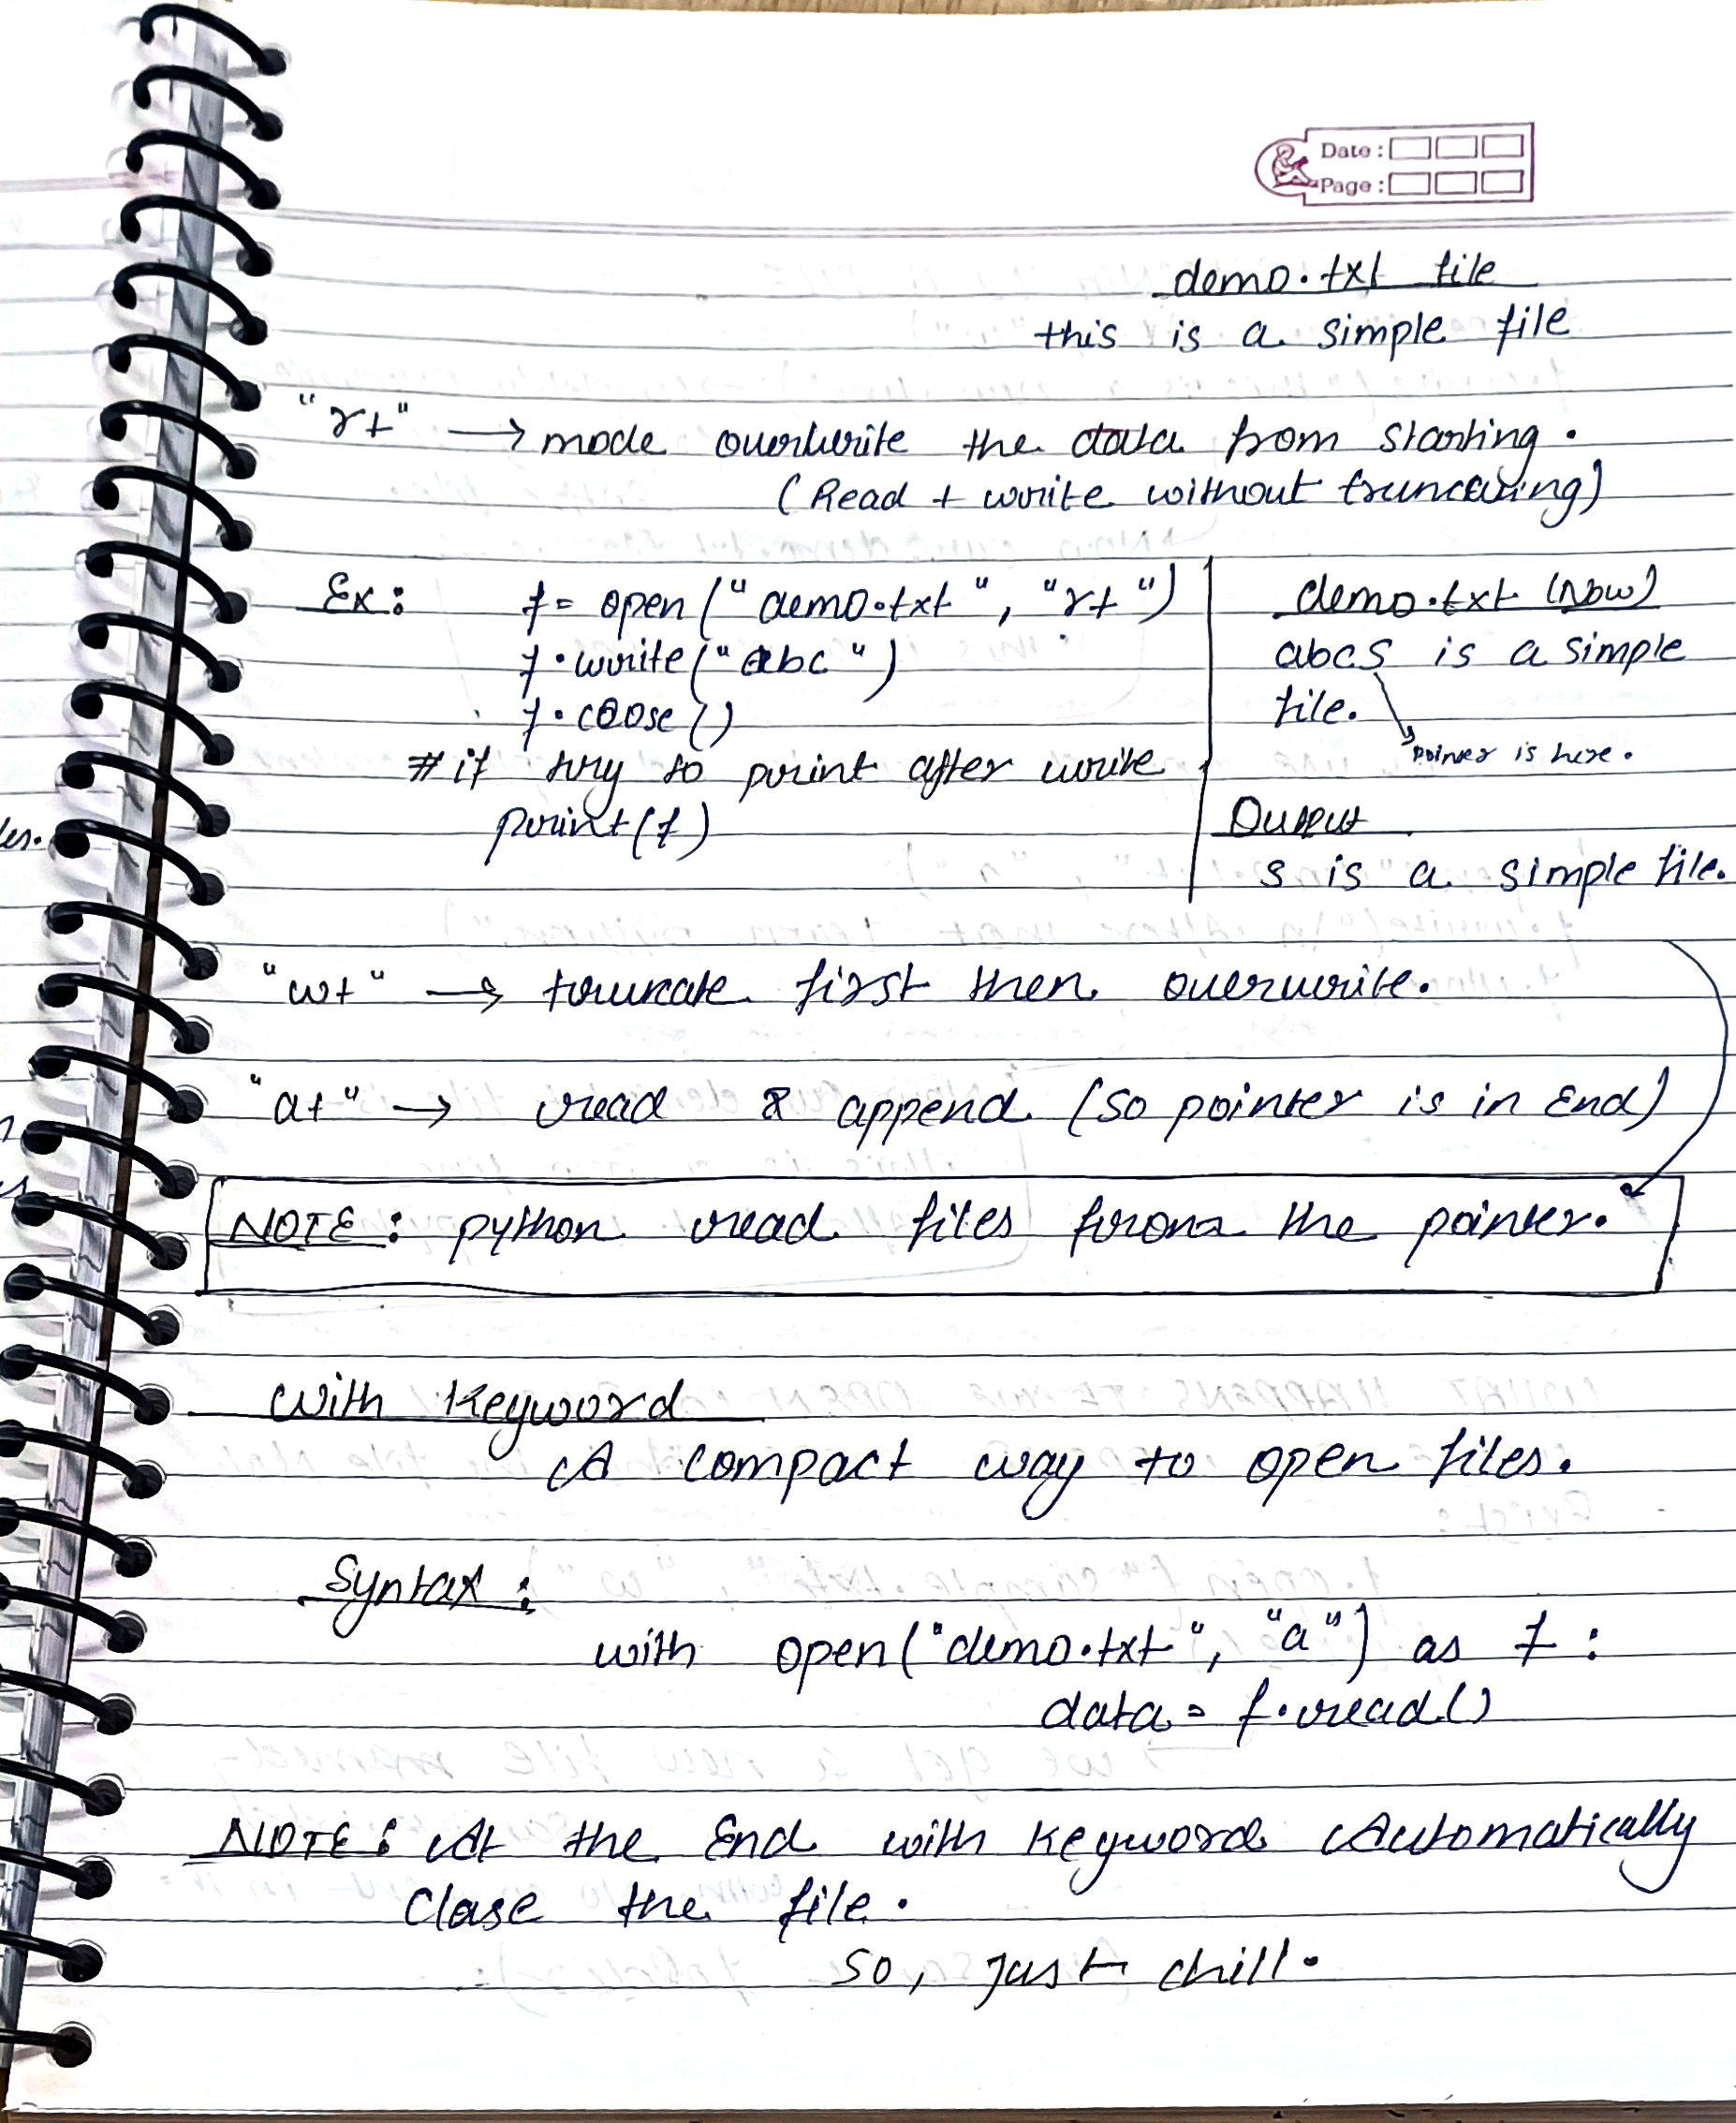 Date :
Page :
demo.txt file
this is a simple file
"r+" → mode overwrite the data from starting.
(Read + write without truncating)
Ex: f= open("demo.txt", "r+")
f.write("abc")
f.close()
#if try to print after write
print(f)
demo.txt (Now)
abcs is a simple
file.
pointer is here.
Output
s is a simple file.
"w+" → truncate first then overwrite.
"a+" → read & append (so pointer is in End)
NOTE: python read files from the pointer.
With Keyword
A compact way to open files.
Syntax:
with open("demo.txt", "a") as f:
data = f.read()
NOTE: At the End with keyword Automatically
Close the file.
So, just chill.